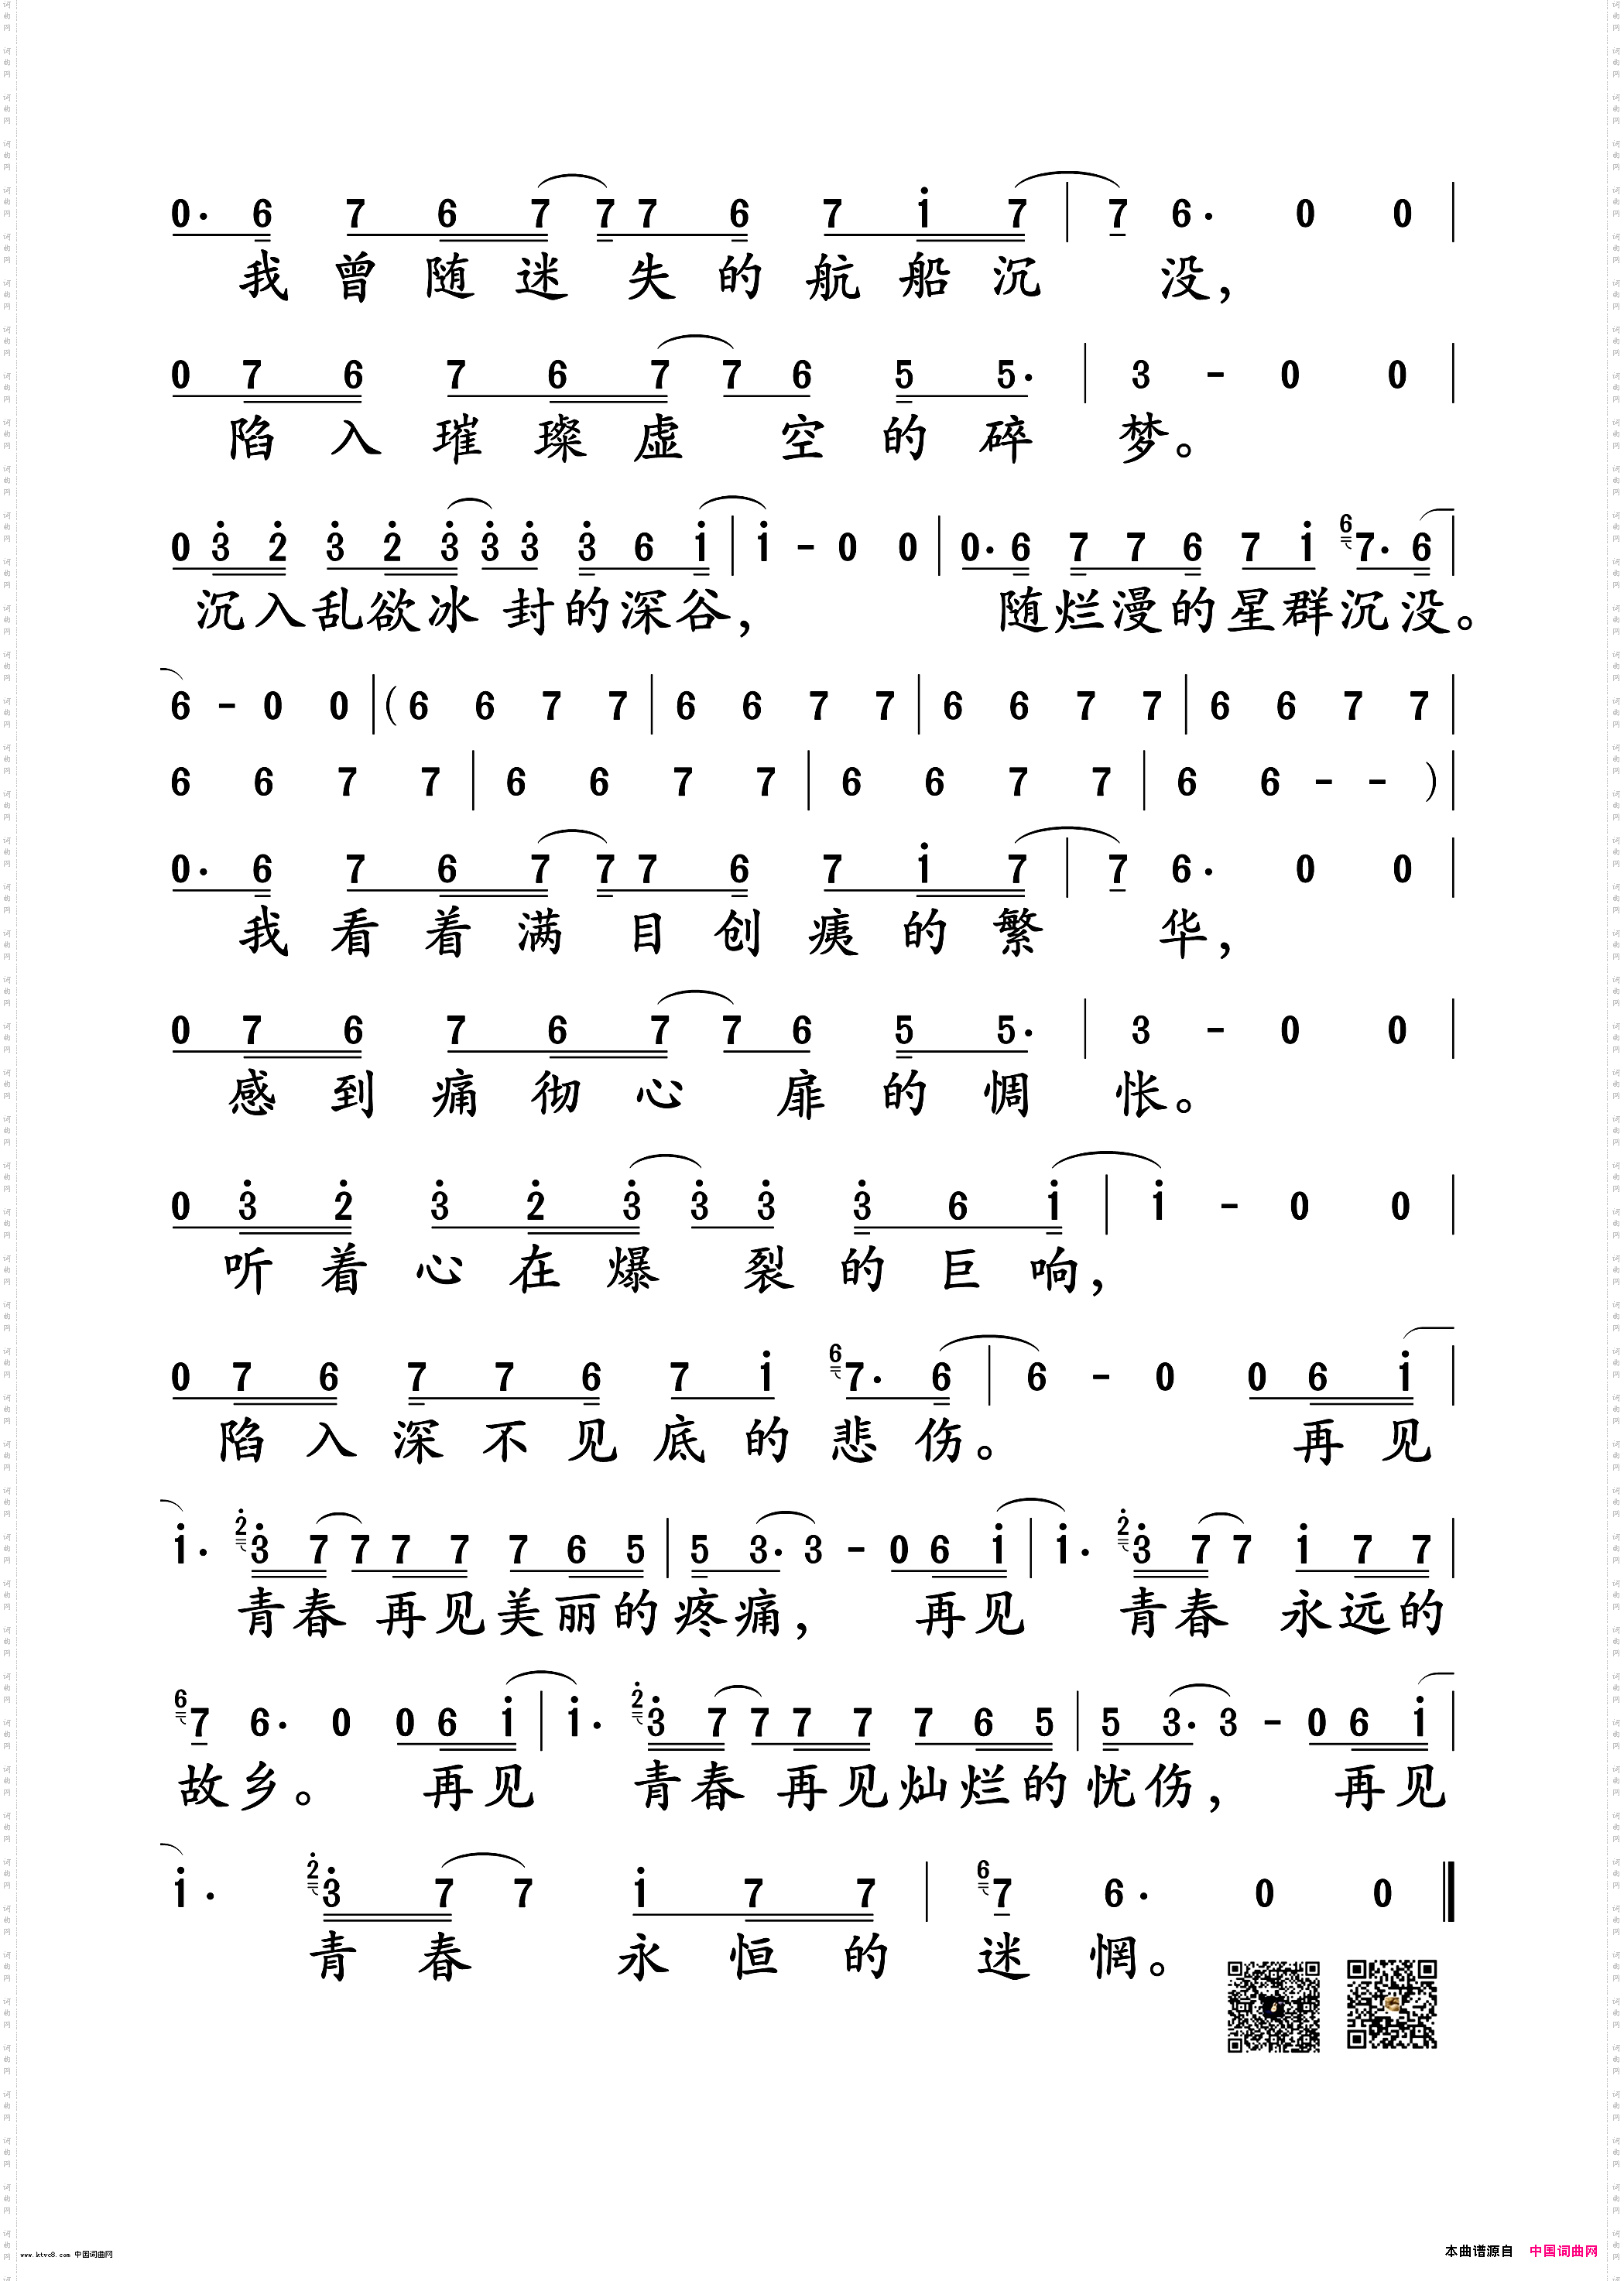 0· 6 7 6 7 7 7 6 7 i 7 | 7 6· 0 0 |
我曾随迷失的航船沉没，
0 7 6 7 6 7 7 6 5 5· | 3 - 0 0 |
陷入璀璨虚空的碎梦。
0 3 2 3 2 3 3 3 3 6 i | i - 0 0 | 0· 6 7 7 6 7 i 6 7· 6 |
沉入乱欲冰封的深谷，随烂漫的星群沉没。
6 - 0 0 | ( 6 6 7 7 | 6 6 7 7 | 6 6 7 7 | 6 6 7 7 |
6 6 7 7 | 6 6 7 7 | 6 6 7 7 | 6 6 - - ) |
0· 6 7 6 7 7 7 6 7 i 7 | 7 6· 0 0 |
我看着满目创痍的繁华，
0 7 6 7 6 7 7 6 5 5· | 3 - 0 0 |
感到痛彻心扉的惆怅。
0 3 2 3 2 3 3 3 3 6 i | i - 0 0 |
听着心在爆裂的巨响，
0 7 6 7 7 6 7 i 6 7· 6 | 6 - 0 0 6 i |
陷入深不见底的悲伤。再见
i· 2 3 7 7 7 7 7 6 5 | 5 3· 3 - 0 6 i | i· 2 3 7 7 i 7 7 |
青春再见美丽的疼痛，再见青春永远的
6 7 6· 0 0 6 i | i· 2 3 7 7 7 7 7 6 5 | 5 3· 3 - 0 6 i |
故乡。再见青春再见灿烂的忧伤，再见
i· 2 3 7 7 i 7 7 | 6 7 6· 0 0
青春永恒的迷惘。
www.ktvc8.com 中国词曲网
本曲谱源自 中国词曲网